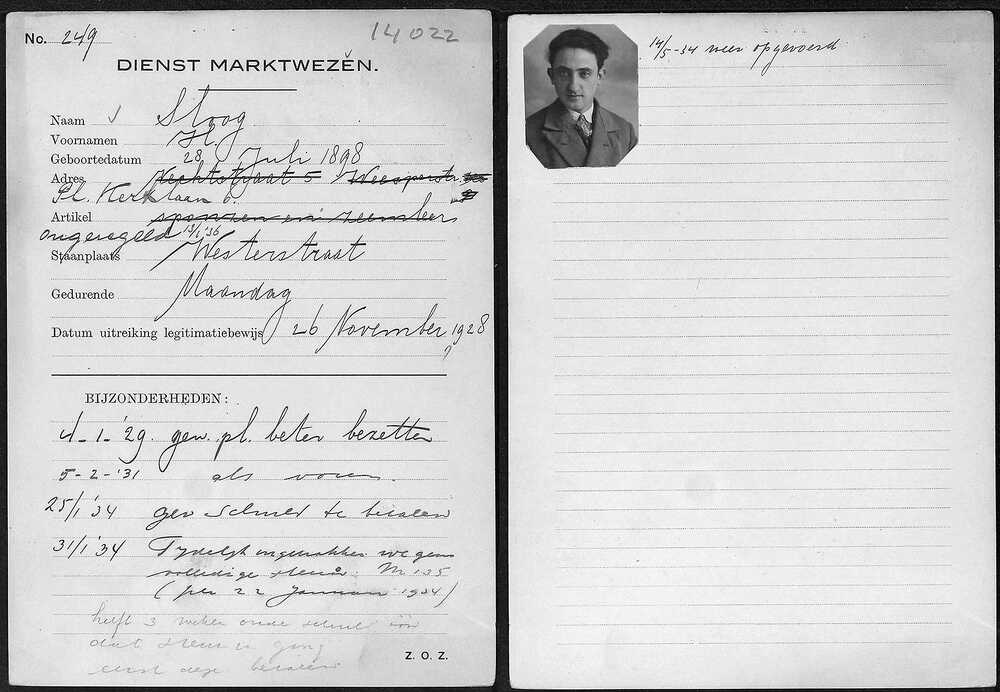 No. 249
14022
DIENST MARKTWEZEN.
Naam Sloog
Voornamen H.
Geboortedatum 28 Juli 1898
Adres Vechtstraat 5 Weesperstr.
Pl. Kerklaan 6.
Artikel sponzen en zeemleer
ongeregeld 13/1 '36
Staanplaats Westerstraat
Gedurende Maandag
Datum uitreiking legitimatiebewijs 26 November 1928
BIJZONDERHEDEN:
4-1-'29. gew. pl. beter bezetten
5-2-'31 als voren.
25/1 '34 gew schuld te betalen
31/1 '34 Tydelyk ingetrokken wegens
volledige steun. M 135
(per 22 Januari 1934)
heeft 3 weken oude schuld voor
dat steun in ging
eerst deze betalen
Z. O. Z.
14/5-34 weer opgevoerd